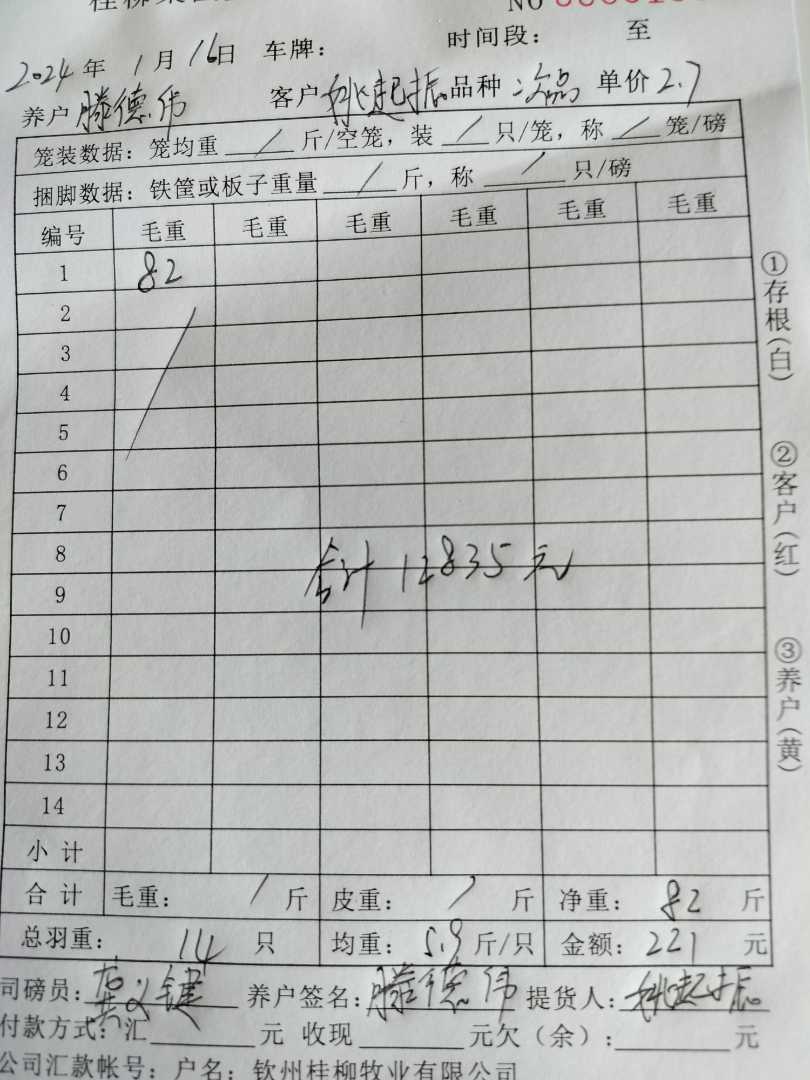 NO
2024年 1月 16日 车牌： 时间段： 至
养户 滕德伟 客户 姚起振 品种 次品 单价 2.7
笼装数据：笼均重 / 斤/空笼，装 / 只/笼，称 / 笼/磅
捆脚数据：铁筐或板子重量 / 斤，称 / 只/磅
编号 毛重 毛重 毛重 毛重 毛重 毛重
1 82
2
3
4
5
6
7
8
合计 12835元
9
10
11
12
13
14
小计
合计 毛重： / 斤 皮重： / 斤 净重： 82 斤
总羽重： 14 只 均重： 5.9 斤/只 金额： 221 元
司磅员： 键 养户签名：滕德伟 提货人：姚起振
付款方式：汇 元 收现 元欠（余）： 元
公司汇款帐号：户名：钦州桂柳牧业有限公司
①存根（白）
②客户（红）
③养户（黄）